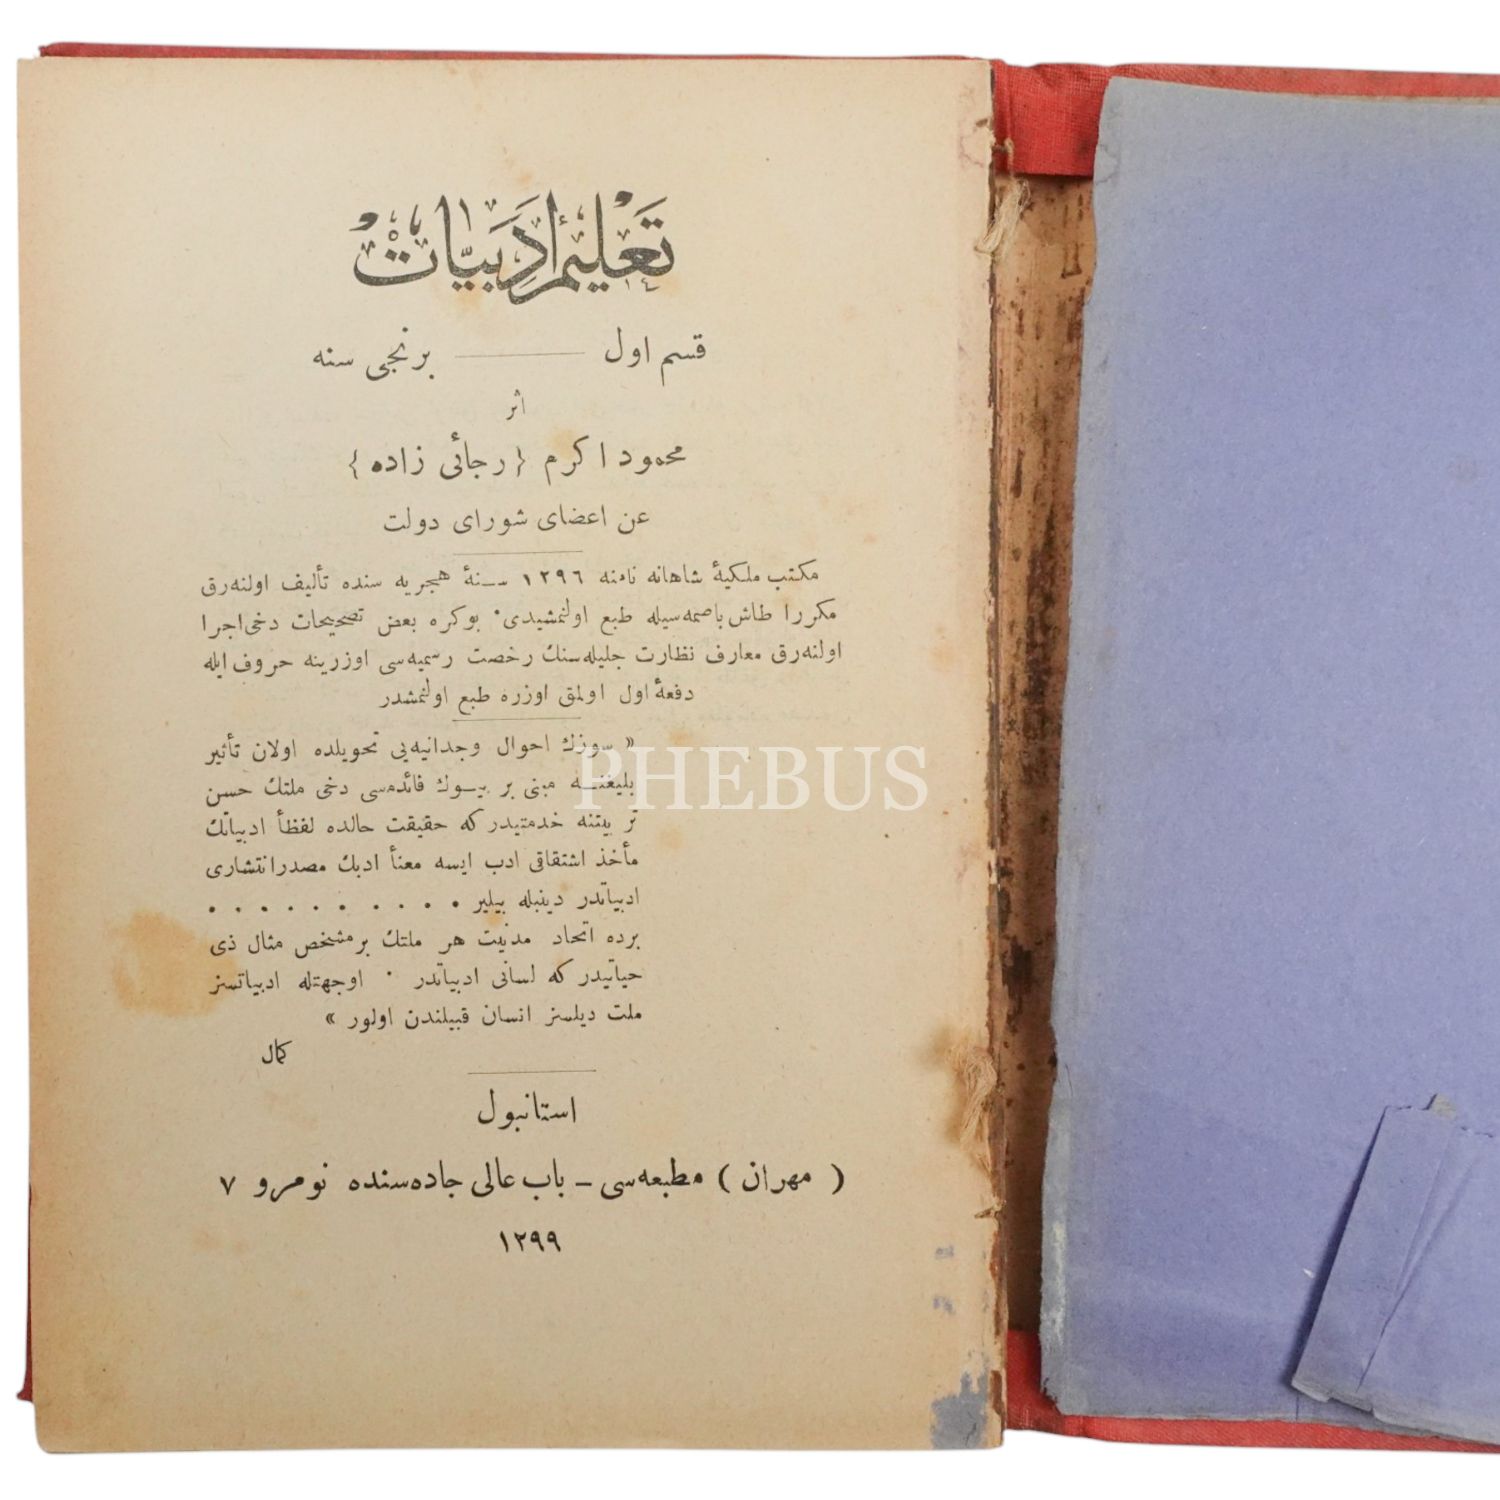 تعليم ادبيات
قسم اول — برنجى سنه
اثر
محمود اكرم {رجائى زاده}
عن اعضاى شوراى دولت
مكتب ملكيۀ شاهانه نامنه ١٢٩٦ سنۀ هجريه سنده تأليف اولنه‌رق
مكررا طاش باصمه‌سيله طبع اولنمشيدى٠ بوكره بعض تصحيحات دخى اجرا
اولنه‌رق معارف نظارت جليله‌سنك رخصت رسميه‌سى اوزرينه حروف ايله
دفعۀ اول اولمق اوزره طبع اولنمشدر
« سوزك احوال وجدانيه‌يى تحويلده اولان تأثير
بليغنه مبنى بر بيوك فائده‌سى دخى ملتك حسن
تربيتنه خدمتيدر كه حقيقت حالده لفظاً ادبياتك
مأخذ اشتقاقى ادب ايسه معناً ادبك مصدر انتشارى
ادبياتدر دينيله بيلير . . . . . . . . . .
برده اتحاد مدنيت هر ملتك بر مشخص مثال ذى
حياتيدر كه لسانى ادبياتدر ٠ اوجهتله ادبياتسز
ملت ديلسز انسان قبيلندن اولور »
كمال
استانبول
( مهران ) مطبعه‌سى – باب عالى جاده‌سنده نومرو ٧
١٢٩٩
PHEBUS